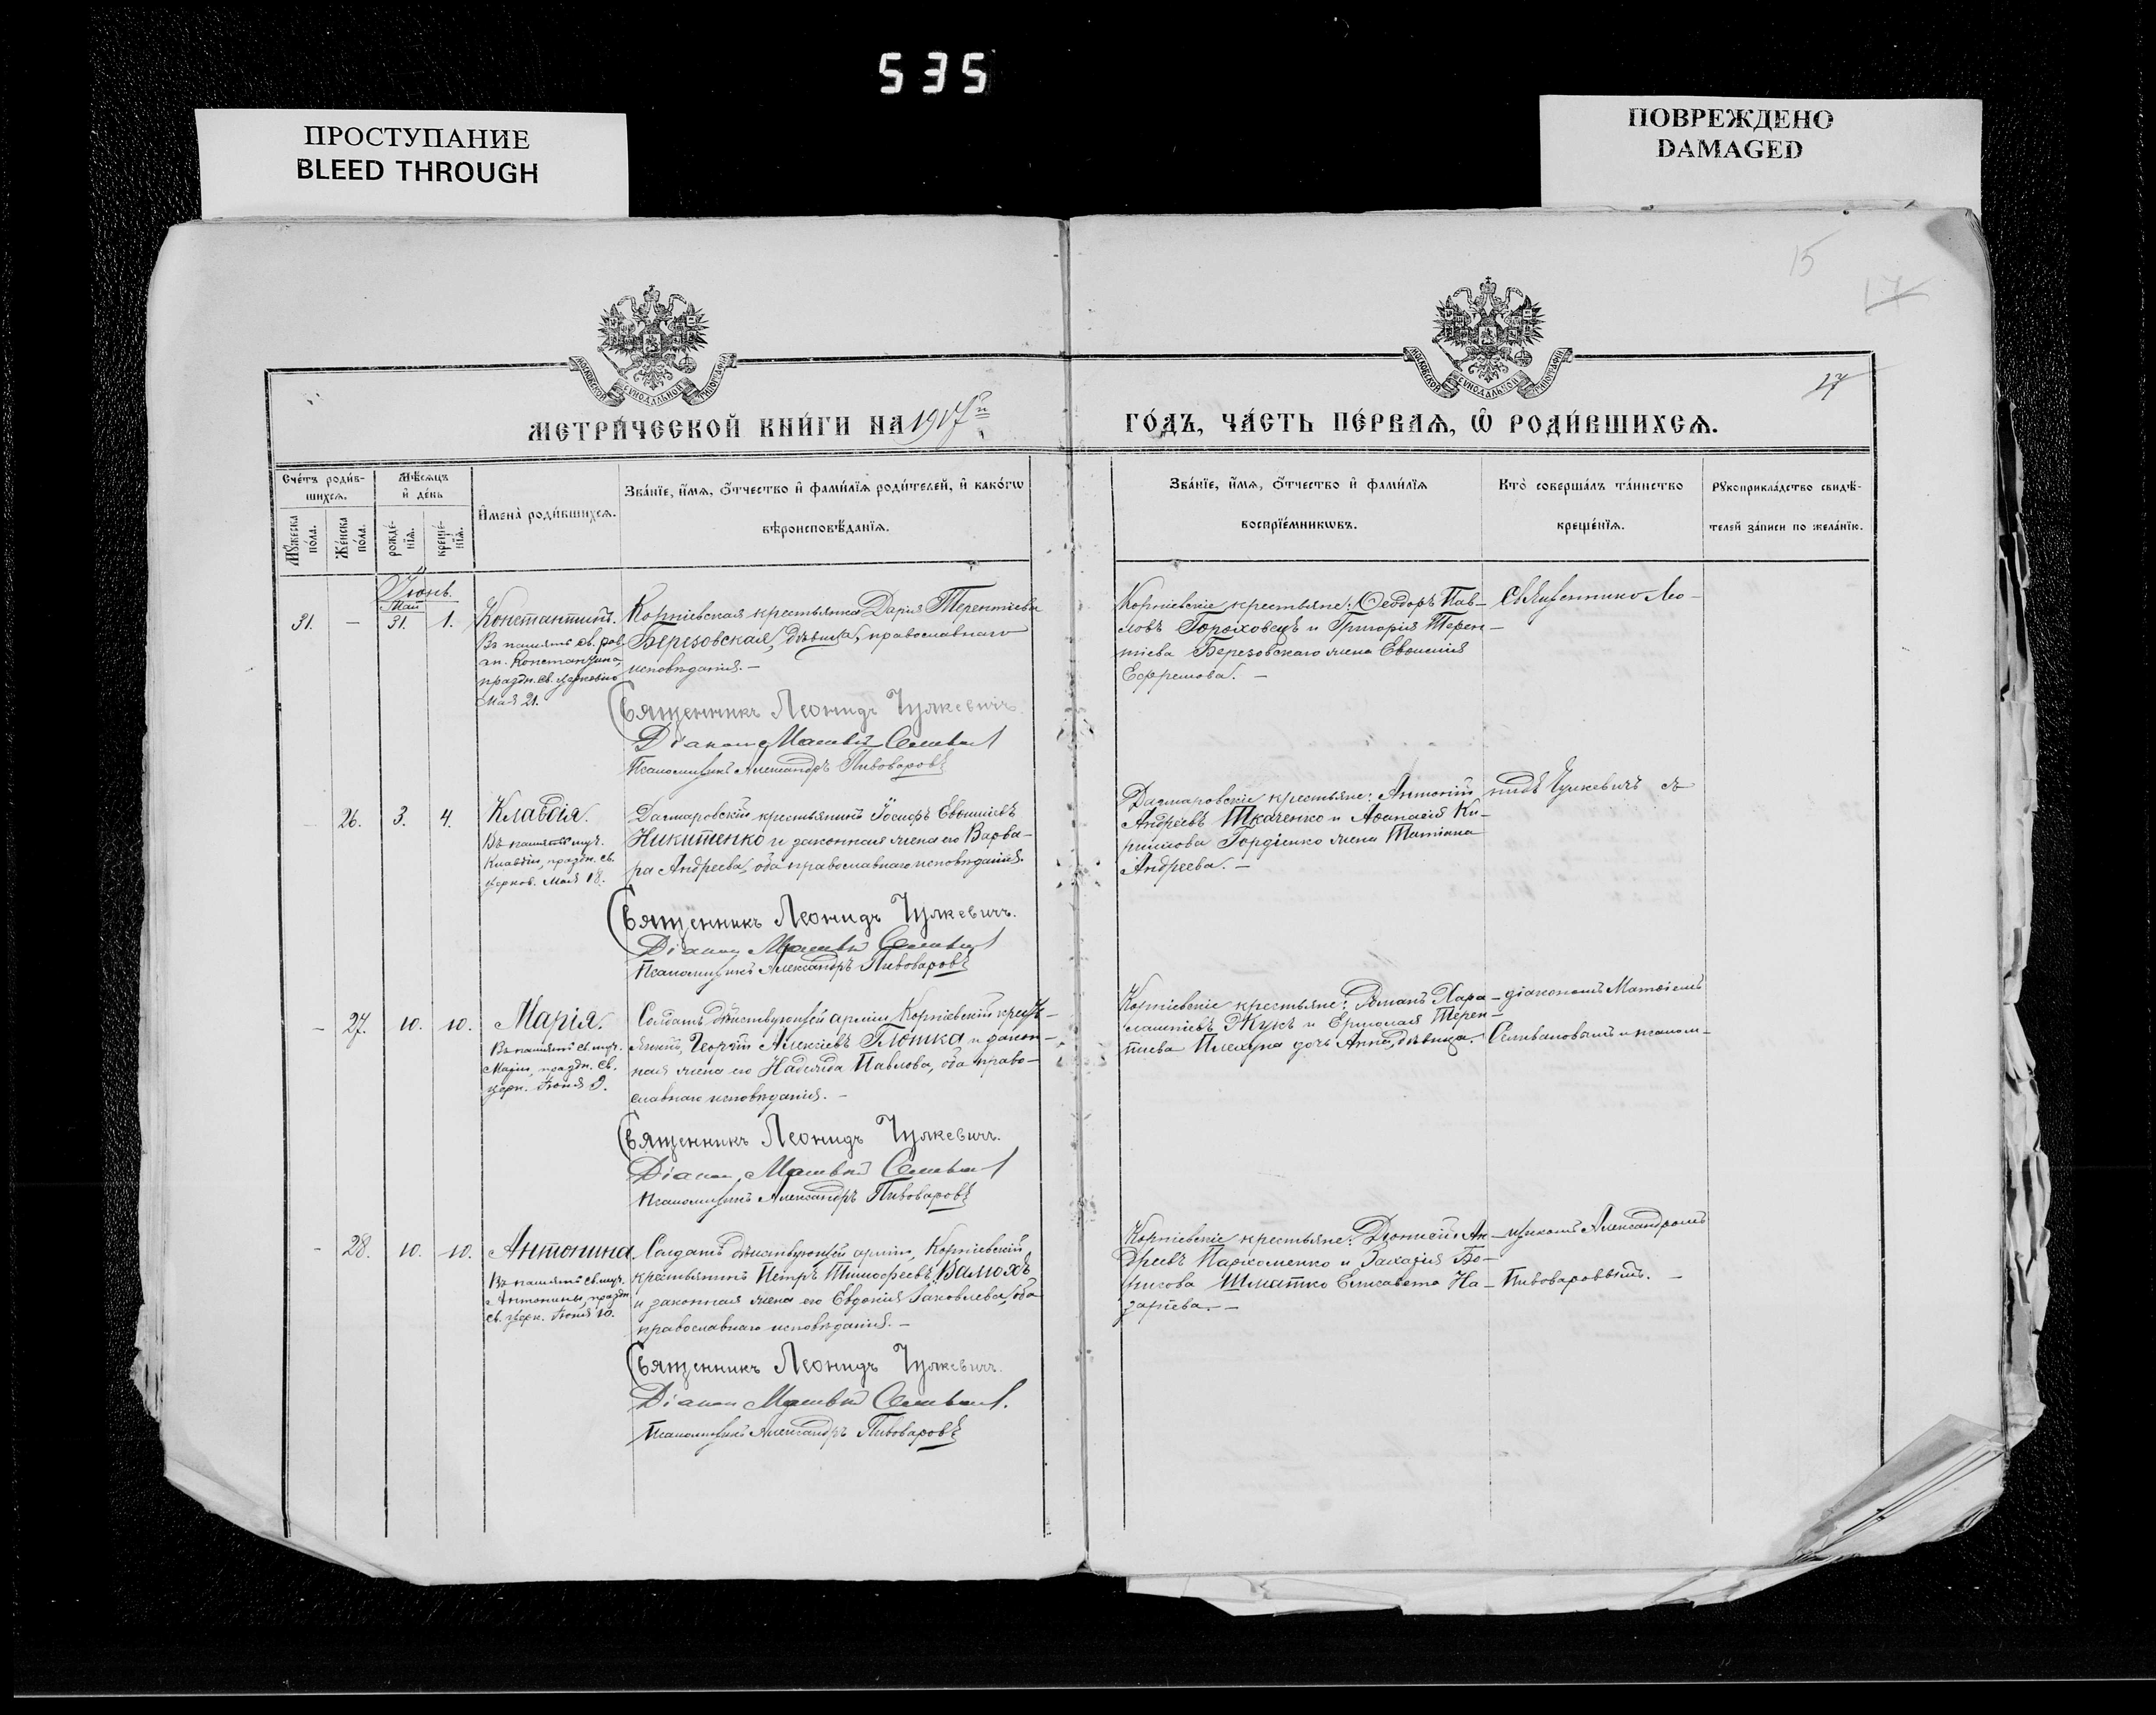 535
ПРОСТУПАНИЕ
BLEED THROUGH
ПОВРЕЖДЕНО
DAMAGED
15
17
27
МОСКОВСКОЙ СѴНОДАЛЬНОЙ ТИПОГРАФІИ
МОСКОВСКОЙ СѴНОДАЛЬНОЙ ТИПОГРАФІИ
МЕТРИ́ЧЕСКОЙ КНИ́ГИ НА 1917й
ГО́ДЪ, ЧА́СТЬ ПЕ́РВАѦ, Ѡ҆ РОДИ́ВШИХСѦ.
Сче́тъ роди́в-
шихсѧ.
Мꙋ́жеска по́ла.
Же́нска по́ла.
Мѣ́сѧцъ
и҆ де́нь
рожде́-
нїѧ.
креще́-
нїѧ.
И҆мена̀ роди́вшихсѧ.
Зва́нїе, и҆́мѧ, ѻ҆́тчество и҆ фами́лїѧ роди́телей, и҆ како́гѡ
вѣроисповѣ́данїѧ.
Зва́нїе, и҆́мѧ, ѻ҆́тчество и҆ фами́лїѧ
воспрїе́мникѡвъ.
Кто̀ соверша́лъ та́инство
креще́нїѧ.
Рꙋкоприкла́дство свидѣ́-
телей за́писи по жела́нїю.
Іюнь.
Май
31. — 31. 1. Константинъ.
Въ память св. рав-
ап. Константина,
праздн. св. церковію
Мая 21.
Корніевская крестьянка Дарія Терентіева
Березовская, дѣвица, православнаго
исповѣданія. —
Священникъ Леонидъ Чулкевичъ.
Діаконъ Матѳій
Псаломщикъ Александръ Пивоваровъ
Корніевскіе крестьяне: Ѳеодоръ Пав-
ловъ Гороховецъ и Григорія Терен-
тіева Березовскаго жена Евѳимія
Ефремова. —
Священникъ Лео-
26. 3. 4. Клавдія.
Въ память муч.
Клавдіи, праздн. св.
церков. Мая 18.
Дагмаровскій крестьянинъ Іосифъ Евѳиміевъ
Никитенко и законная жена его Варва-
ра Андреева, оба православнаго исповѣданія.
Священникъ Леонидъ Чулкевичъ.
Діаконъ Матѳій
Псаломщикъ Александръ Пивоваровъ
Дагмаровскіе крестьяне: Антоній
Андреевъ Ткаченко и Аѳанасія Ки-
риллова Гордіенко жена Татіана
Андреева. —
нидъ Чулкевичъ съ
— 27. 10. 10. Марія.
Въ память св. муч.
Маріи, праздн. св.
церк. Іюня 9.
Солдатъ дѣйствующей арміи, Корніевскій кресть-
янинъ, Георгій Алексіевъ Глюшка и закон-
ная жена его Надежда Павлова, оба право-
славнаго исповѣданія. —
Священникъ Леонидъ Чулкевичъ.
Діаконъ Матѳій
Псаломщикъ Александръ Пивоваровъ
Корніевскіе крестьяне: Романъ Хара-
лампіевъ Жукъ и Ермолая Терен-
тіева дочь Анна, дѣвица.
діакономъ Матѳіемъ
Селивановымъ и псалом-
— 28. 10. 10. Антонина
Въ память св. муч.
Антонины, праздн.
св. церк. Іюня 10.
Солдатъ дѣйствующей арміи, Корніевскій
крестьянинъ Петръ Тимоѳеевъ Валюхъ
и законная жена его Евдокія Іаковлева, оба
православнаго исповѣданія. —
Священникъ Леонидъ Чулкевичъ.
Діаконъ Матѳій
Псаломщикъ Александръ Пивоваровъ
Корніевскіе крестьяне: Діонисій Ан-
дреевъ Пархоменко и Захарія Бо-
рисова Шматко Елисавета На-
заріева. —
щикомъ Александромъ
Пивоваровымъ. —